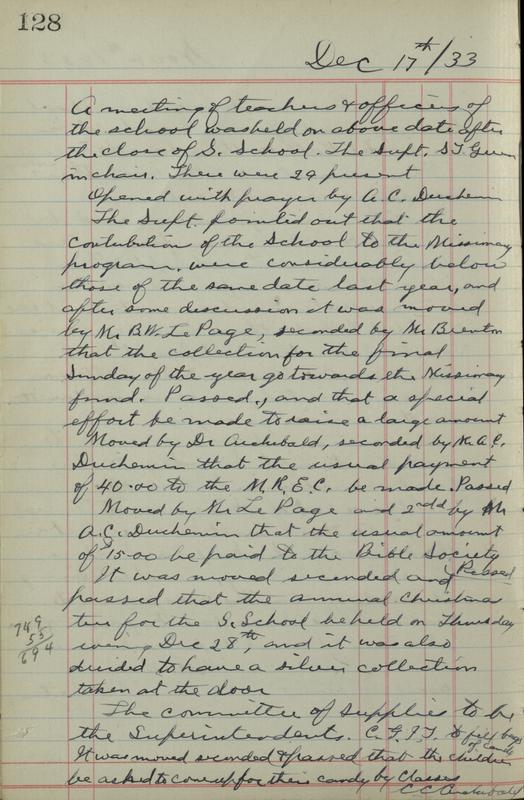 128
Dec 17th/33
A meeting of teachers & officers of
the school was held on above date after
the close of S. School. The Supt. S.T. Green
in chair. There were 29 present
Opened with prayer by A. C. Duchemin
The Supt. pointed out that the
contribution of the School to the Missionary
program. were considerably below
those of the same date last year, and
after some discussion it was moved
by Mr B.W. LePage, seconded by Mr Brenton
that the collection for the final
Sunday of the year go towards the Missionary
fund. Passed., and that a special
effort be made to raise a large amount
Moved by Dr Archibald, seconded by Mr A.C.
Duchemin that the usual payment
of 40.00 to the M.R.E.C. be made. Passed
Moved by Mr LePage and 2nd by Mr
A.C. Duchemin that the usual amount
of 15.00 be paid to the Bible Society
Passed
It was moved seconded and
passed that the annual Christmas
tree for the S. School be held on Thursday
evening Dec 28th, and it was also
decided to have a silver collection
taken at the door
749
55
694
The committee of supplies to be
the Superintendents. C.G.I.T. to fill bags
of candy
It was moved seconded & passed that the children
be asked to come up for their candy by classes
C C Archibald